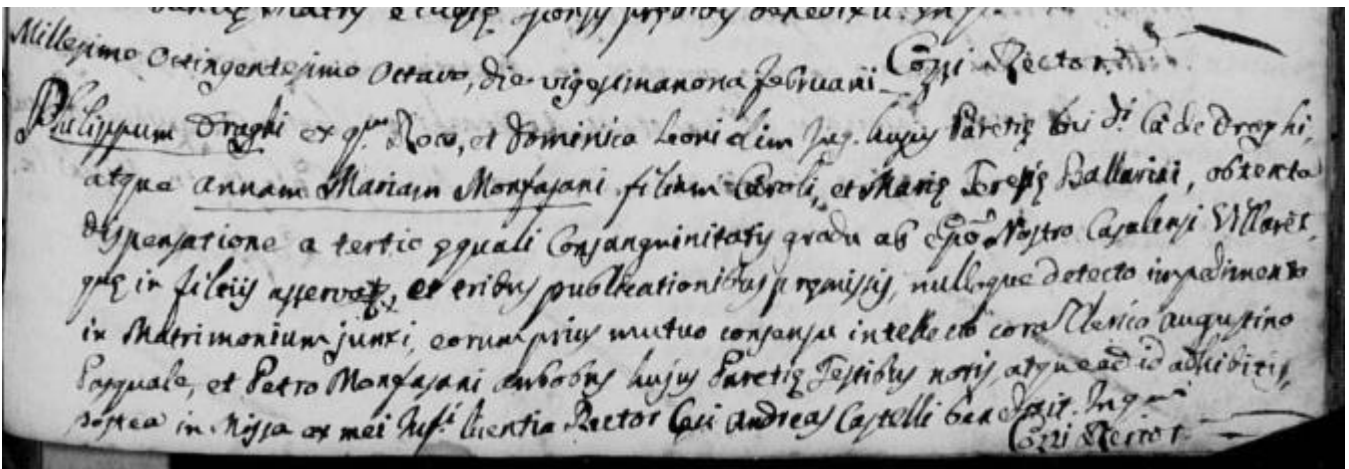 Cozzi Rector
Millesimo Octingentesimo Octavo, die vigesimanona Februarii
Philippum Draghi ex q.m Roco, et Dominica Leoni olim Jug. hujus Paretię loci d.i Cà de Draghi,
atque Annam Mariam Monfasani filiam Caroli, et Marię Teresię Ballarini, obtenta
dispensatione a tertio ęquali Consanguinitatis gradu ab Epõ Nostro Casalensi Villaret,
quę in filtiis asservatę, et tribus publicationibus pręmissis, nulloque detecto impedimento
in Matrimonium junxi, eorum prius mutuo consensu intellecto corã Clerico Augustino
Pasquale, et Petro Monfasani ambobus hujus Paretię Testibus notis, atque ad id adhibitis,
postea in Missa ex mei Inf.i licentia Rector Andreas Castelli benedixit. In q.
Cozzi Rector